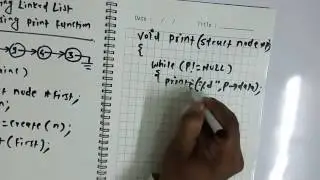 Linked List
Print Function
5 5 5
node *First;
=create(n);
(First);
Date : / / Title :
void Print(struct node *P)
{
while(P!=NULL)
{ printf("%d",P→data);